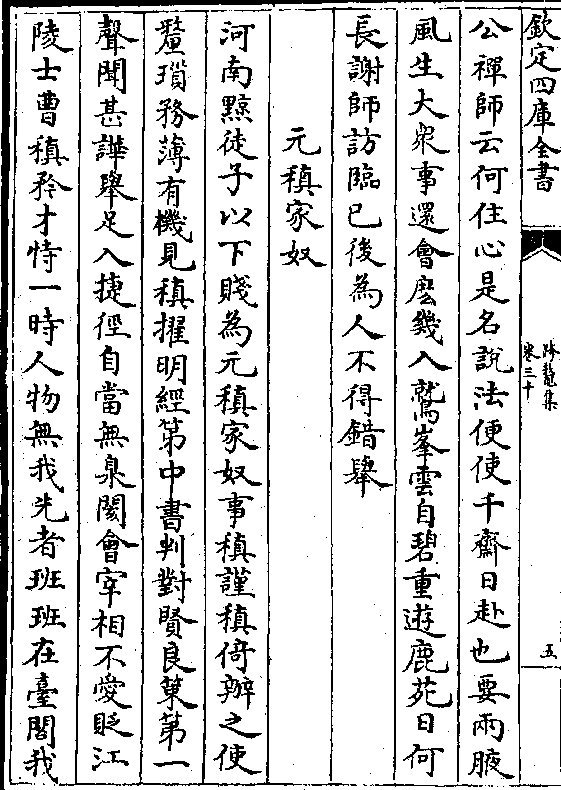 欽定四庫全書
跨鼇集
卷三十
五
公禪師云何住心是名說法便使千齋日赴也要兩腋
風生大衆事還會麽幾入鷲峯雲自碧重遊鹿苑日何
長謝師訪臨已後為人不得錯舉
元稹家奴
河南黥徒子以下賤為元稹家奴事稹謹稹倚辦之使
釐瑣務薄有機見稹擢明經第中書判對賢良策第一
聲聞甚譁舉足入捷徑自當無臬閡會宰相不愛貶江
陵士曹稹矜才恃一時人物無我先者班班在臺閣我